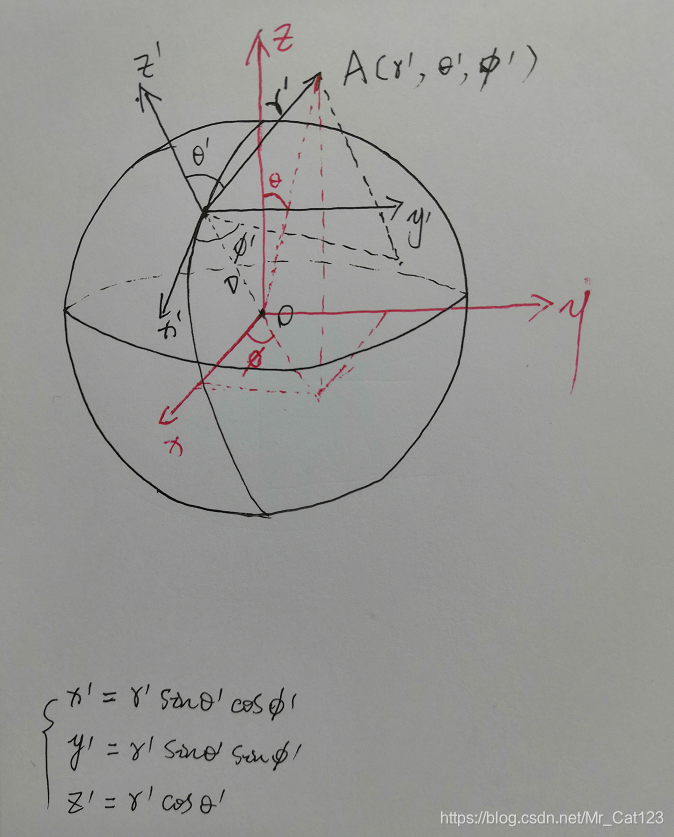 z
z'
A(r', θ', ϕ')
r'
θ'
θ
y'
ϕ'
D
x'
O
y
ϕ
x
x' = r' sinθ' cosϕ'
y' = r' sinθ' sinϕ'
z' = r' cosθ'
https://blog.csdn.net/Mr_Cat123